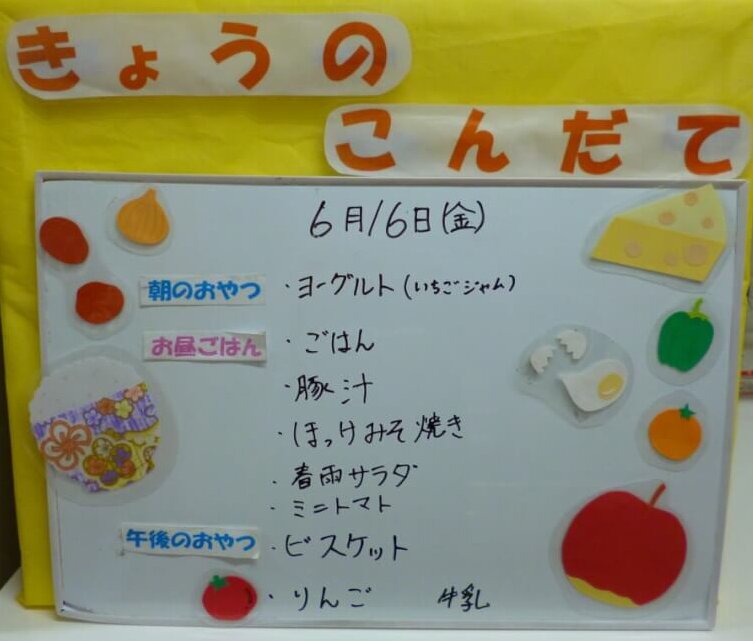 きょうの
こんだて
6月16日(金)
朝のおやつ ・ヨーグルト(いちごジャム)
お昼ごはん ・ごはん
・豚汁
・ほっけみそ焼き
・春雨サラダ
・ミニトマト
午後のおやつ ・ビスケット
・りんご 牛乳